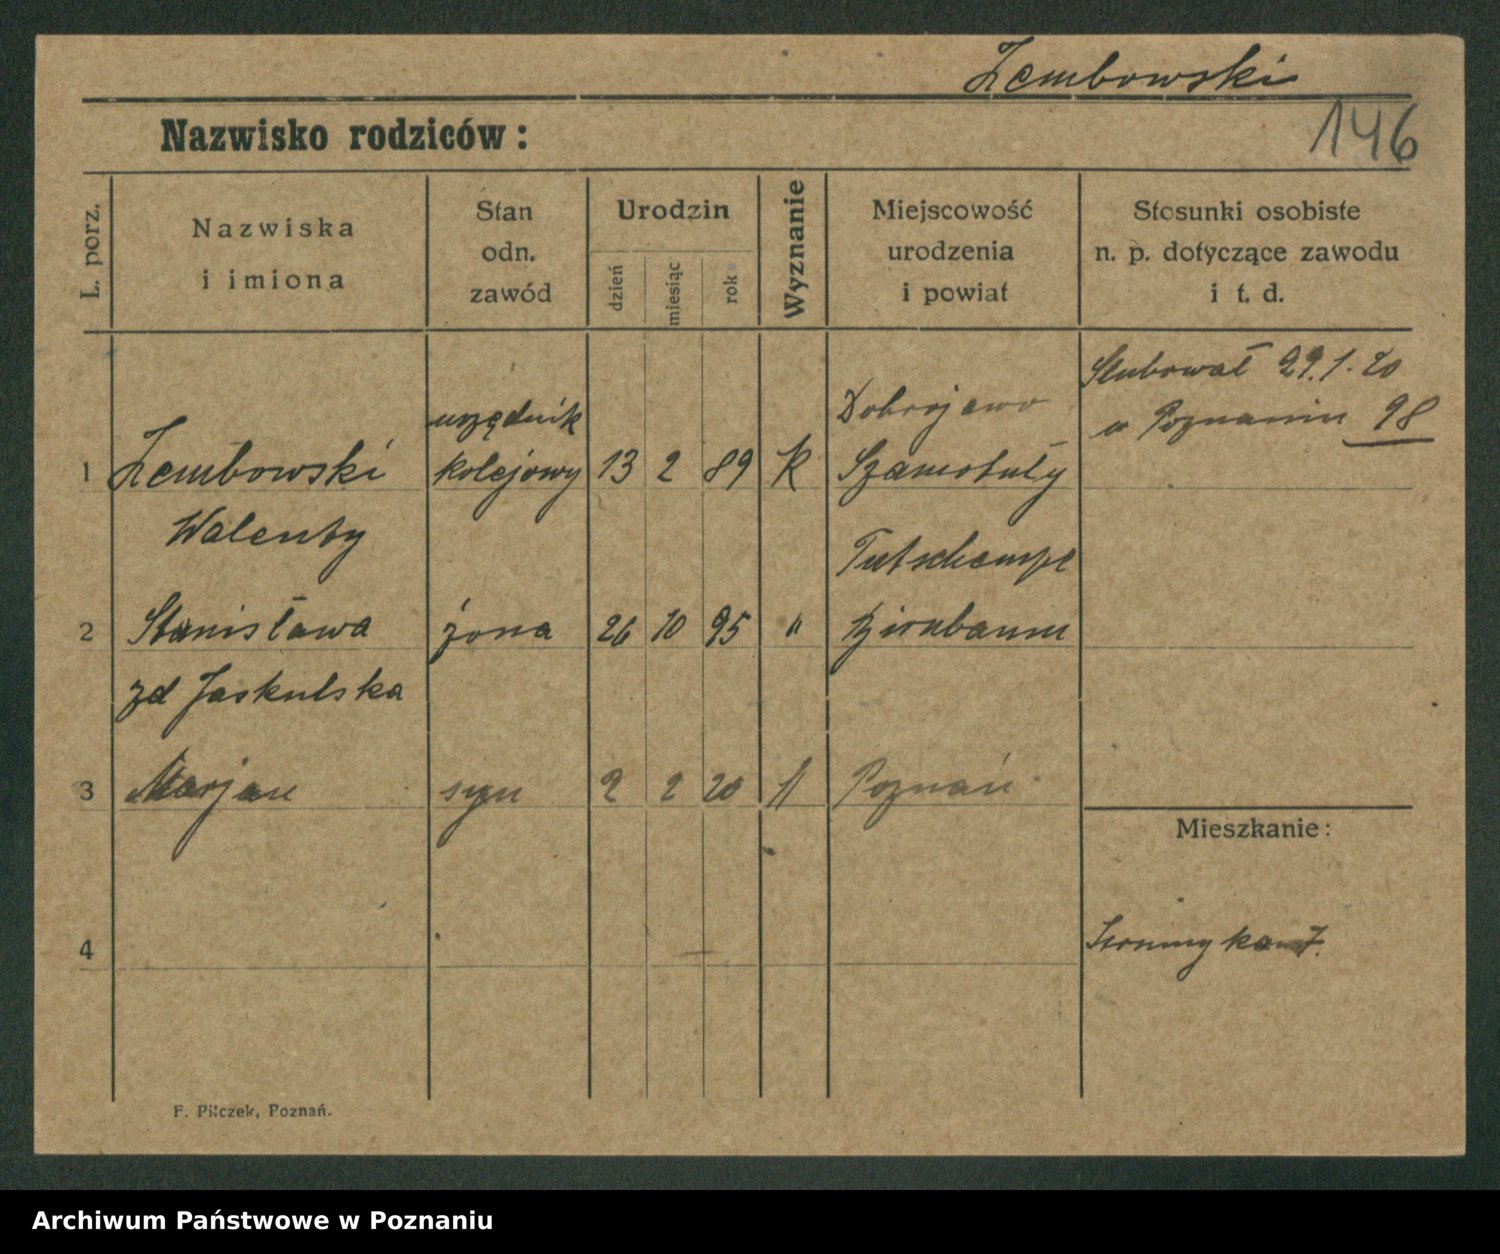 Zembowski
Nazwisko rodziców:
146
L. porz.
Nazwiska
i imiona
Stan
odn.
zawód
Urodzin
dzień
miesiąc
rok
Wyznanie
Miejscowość
urodzenia
i powiat
Stosunki osobiste
n. p. dotyczące zawodu
i t. d.
1
Zembowski
Walenty
urzędnik
kolejowy
13 2 89
K
Dobrojewo
Szamotuły
Slubował 29.1.20
w Poznaniu 98
2
Stanisława
zd Jaskulska
żona
26 10 95
"
Tutschempe
Birnbaum
3
Marjan
syn
2 2 20
"
Poznań
Mieszkanie:
4
F. Pilczek, Poznań.
Archiwum Państwowe w Poznaniu